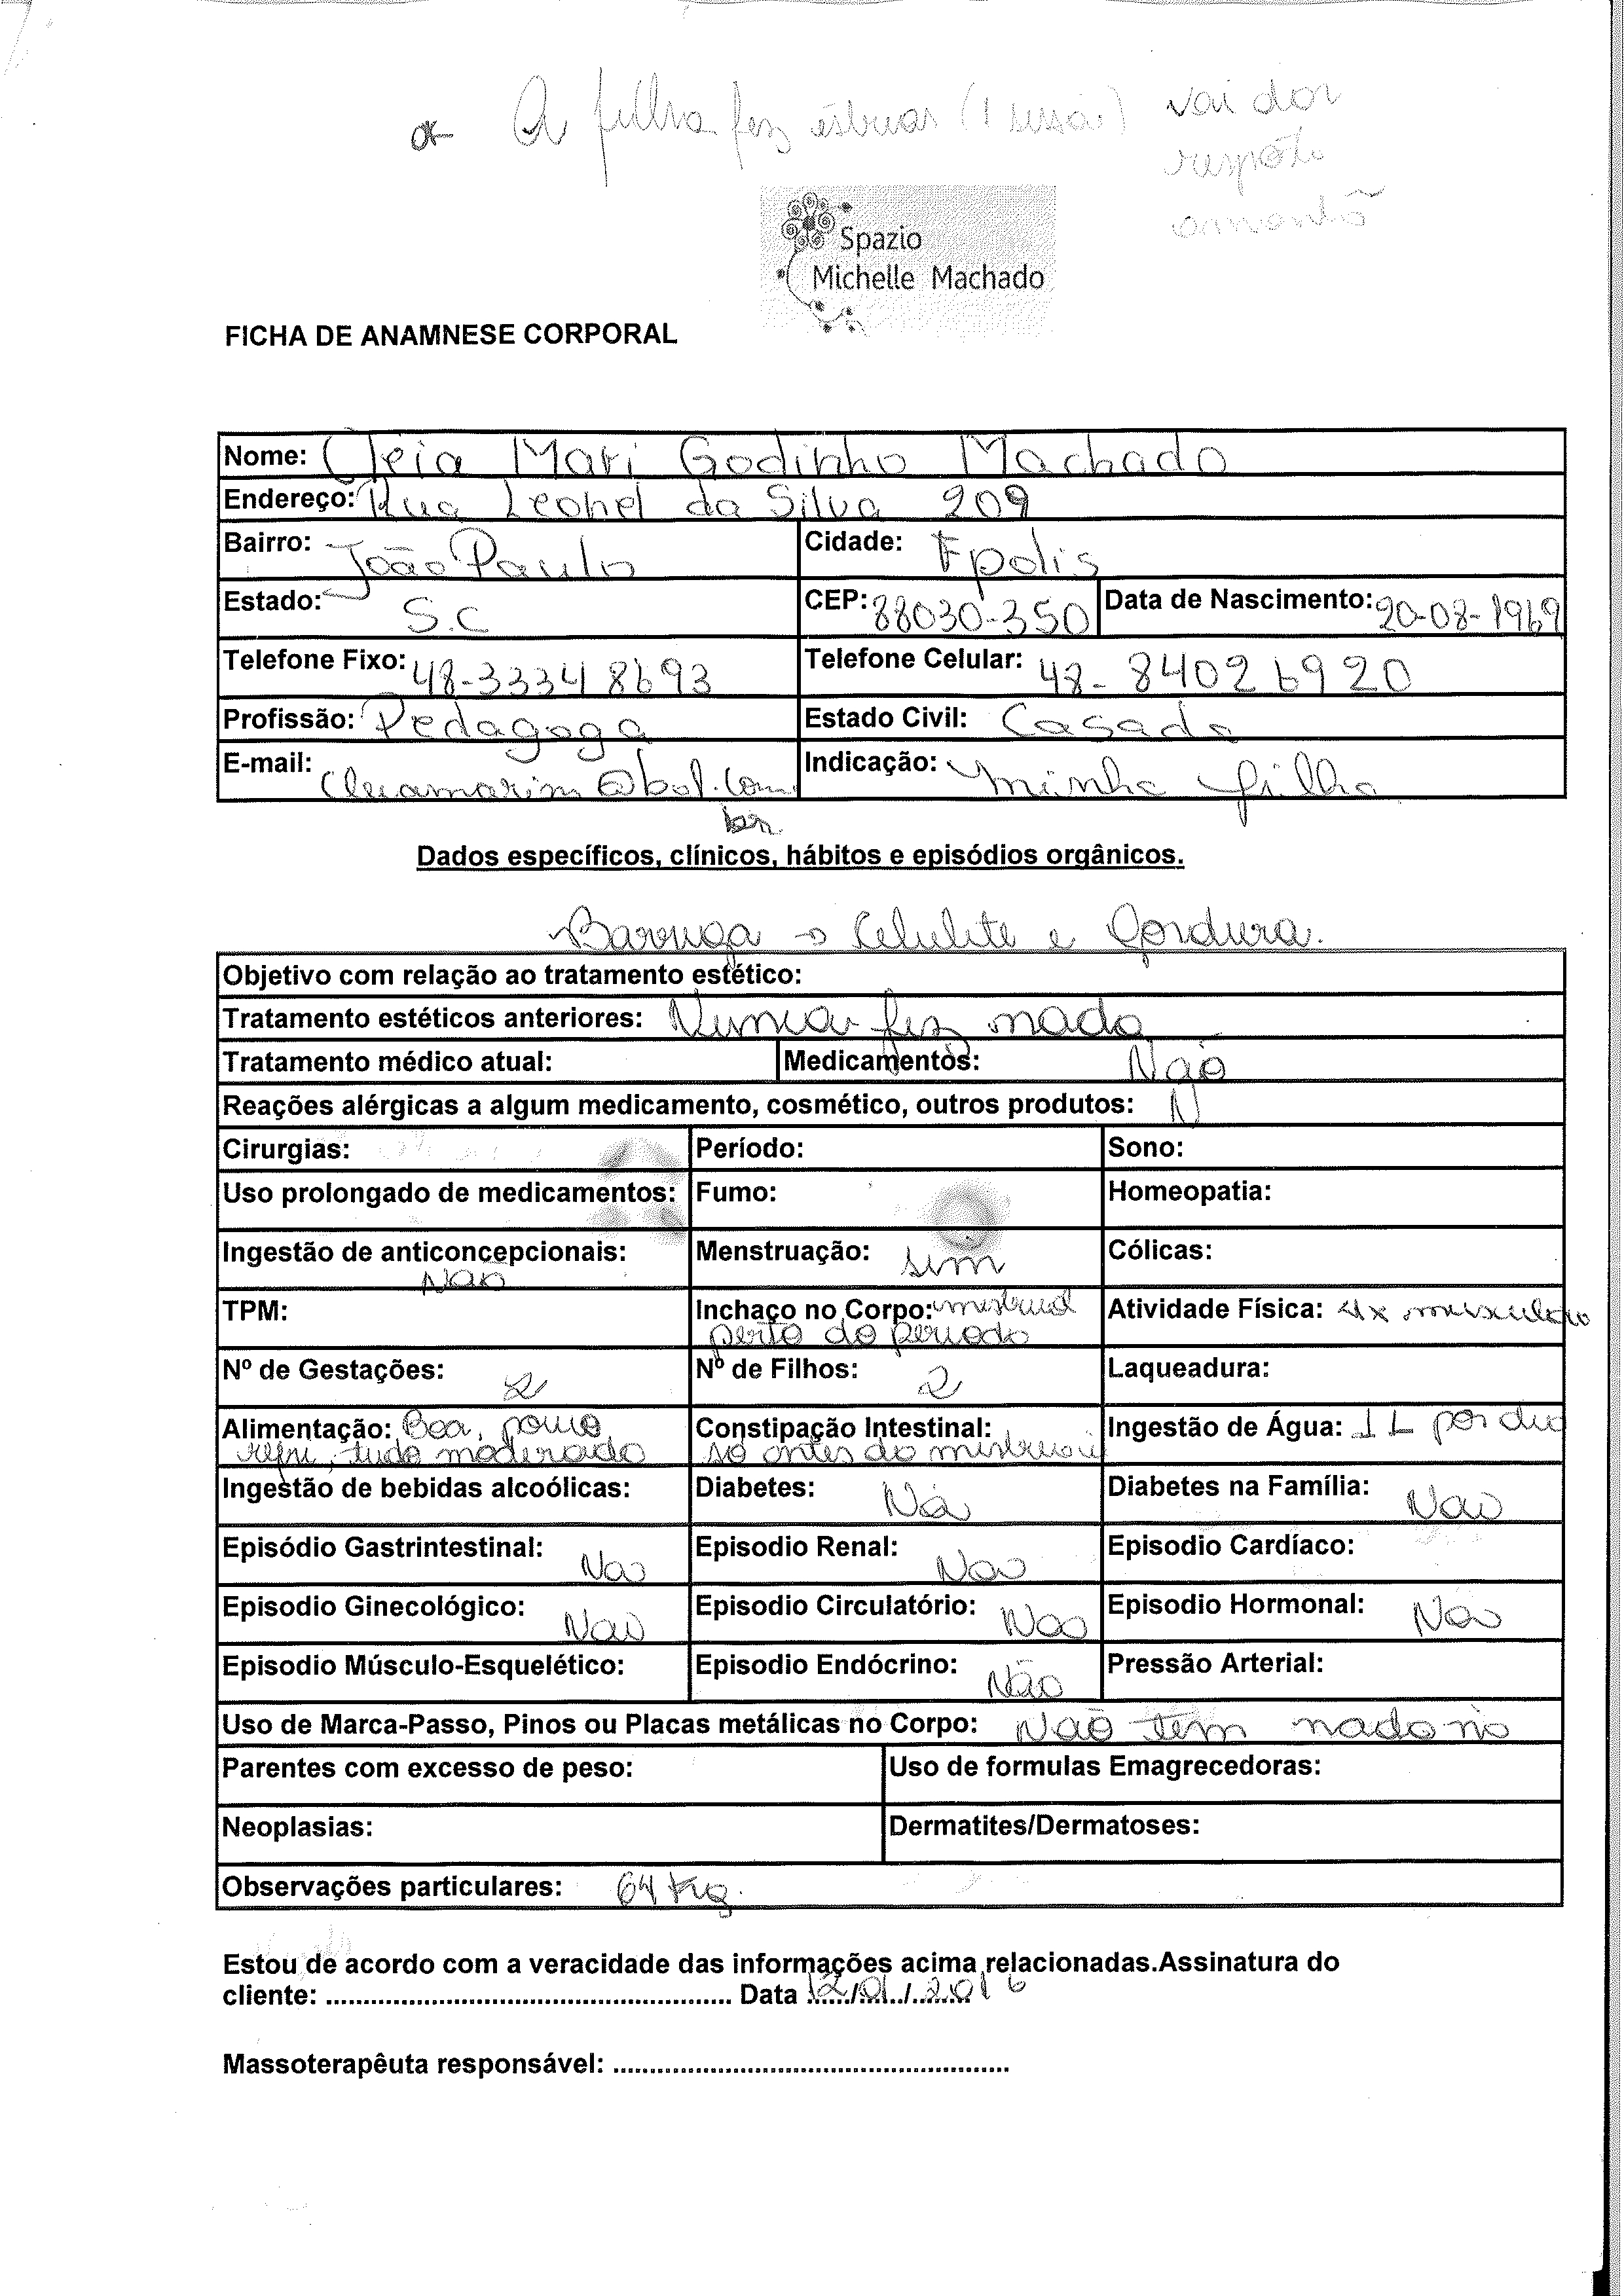 A filha fez estrias (1 sessão) vai dar
resposta
amanhã
Spazio
Michelle Machado
FICHA DE ANAMNESE CORPORAL
Nome: Cleia Mari Godinho Machado
Endereço: Rua Leonel da Silva 209
Bairro: João Paulo Cidade: Fpolis
Estado: S.C CEP: 88030-350 Data de Nascimento: 20-08-1969
Telefone Fixo: 48-33348693 Telefone Celular: 48-84026920
Profissão: Pedagoga Estado Civil: Casada
E-mail: cleiamarim@bol.com. Indicação: minha filha
br.
Dados específicos, clínicos, hábitos e episódios orgânicos.
Barriga → Celulite e Gordura.
Objetivo com relação ao tratamento estético:
Tratamento estéticos anteriores: Nunca fez nada
Tratamento médico atual: Medicamentos: Não
Reações alérgicas a algum medicamento, cosmético, outros produtos: N
Cirurgias: Período: Sono:
Uso prolongado de medicamentos: Fumo: Homeopatia:
Ingestão de anticoncepcionais: Menstruação: sim Cólicas:
Não
TPM: Inchaço no Corpo: menstrual Atividade Física: 4x musculação
perto do periodo
Nº de Gestações: 2 Nº de Filhos: 2 Laqueadura:
Alimentação: Boa, pouco Constipação Intestinal: Ingestão de Água: 1 L por dia
refri, tudo moderado só antes da
Ingestão de bebidas alcoólicas: Diabetes: Não Diabetes na Família: Não
Episódio Gastrintestinal: Não Episodio Renal: Não Episodio Cardíaco:
Episodio Ginecológico: Não Episodio Circulatório: Não Episodio Hormonal: Não
Episodio Músculo-Esquelético: Episodio Endócrino: Não Pressão Arterial:
Uso de Marca-Passo, Pinos ou Placas metálicas no Corpo: Não tem nada no
Parentes com excesso de peso: Uso de formulas Emagrecedoras:
Neoplasias: Dermatites/Dermatoses:
Observações particulares: 64 Kg.
Estou de acordo com a veracidade das informações acima relacionadas.Assinatura do
cliente: ........................................................ Data 12/01/2016
Massoterapêuta responsável: ......................................................